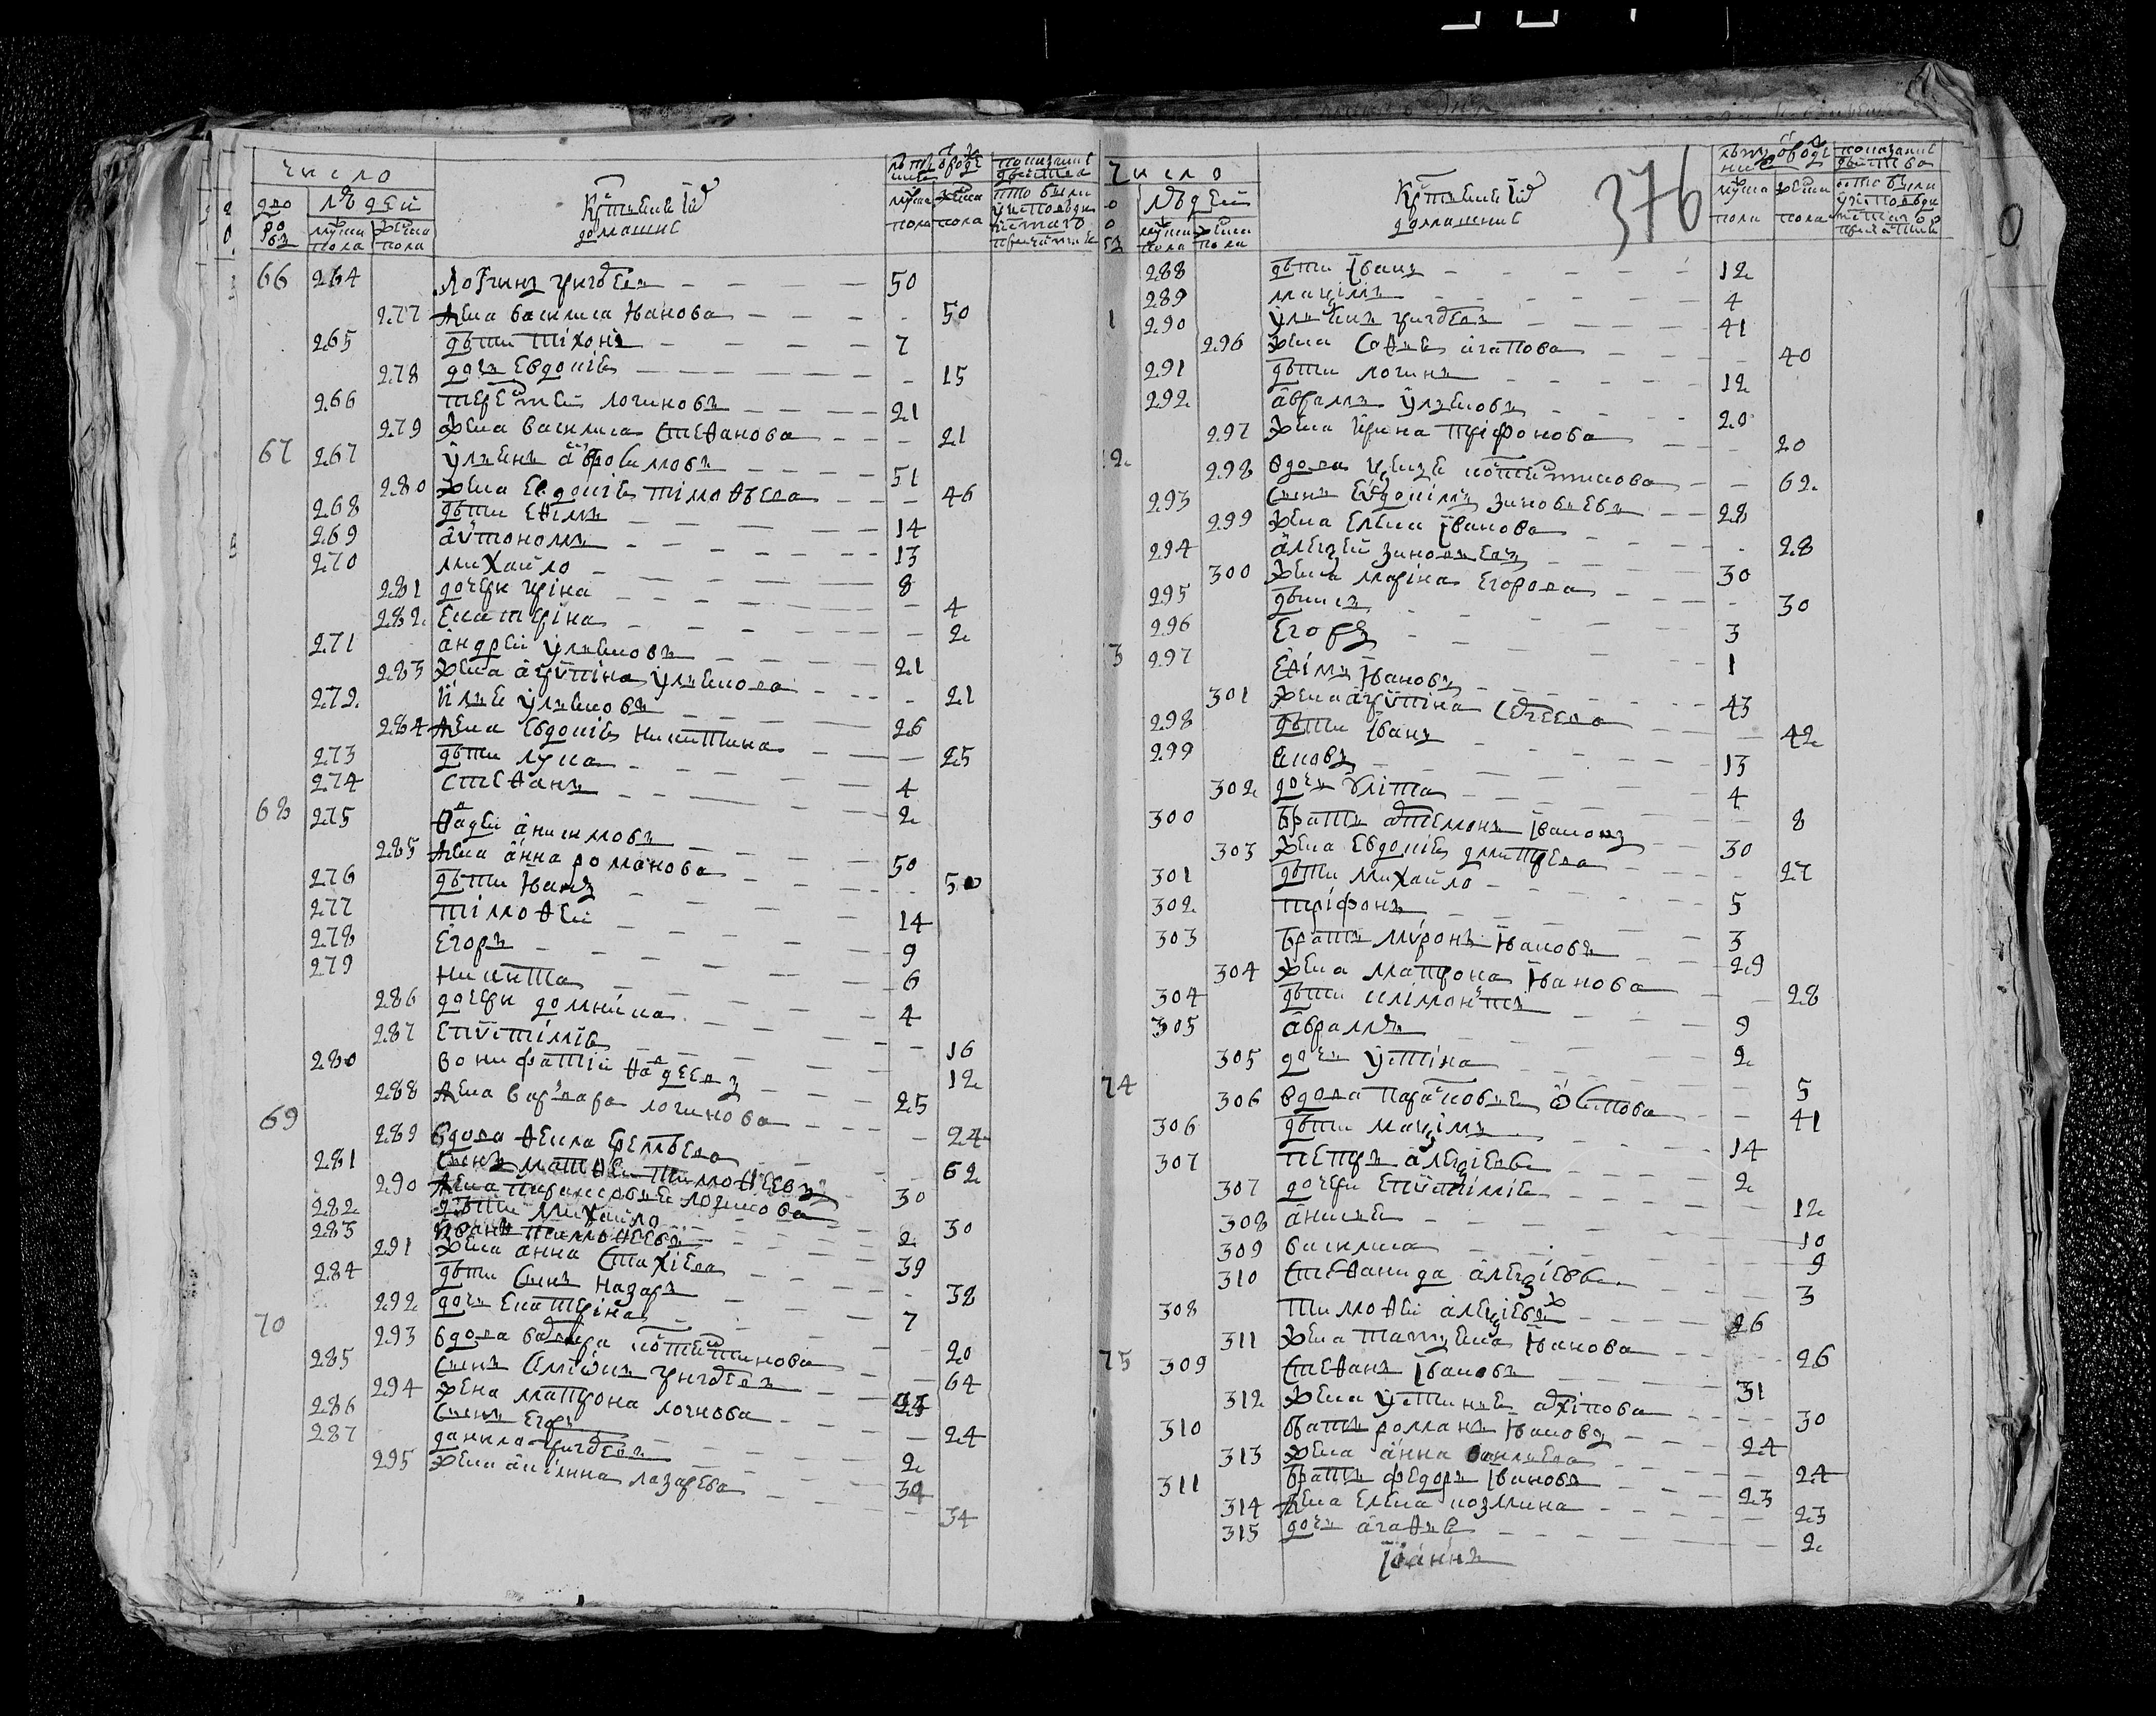 число
дворовъ
людей
муска пола
женска пола
Крестьяне и ихъ домашние
лѣта отъ роду
муска пола
женска пола
66 264 Логгинъ григорьевъ 50
277 Жена василиса Иванова 50
265 дѣти тихонъ 7
278 дочь Евдокия 15
266 терентей логиновъ 21
279 Жена василиса Стефанова 21
67 267 Ульянъ
51
280 Жена Евдокия тимофѣева 46
268 дѣти Ефимъ 14
269 аѵтономъ 13
270 михайло 8
281 дочери ирина 4
282 Екатерина 2
271 андрей ульяновъ 21
283 Жена агрѵпина ульянова 21
272 Илья ульяновъ 26
284 Жена Евдокия никитина 25
273 дѣти лука 4
274 Стефанъ 2
68 275 фадей анисимовъ 50
285 Жена анна романова 50
276 дѣти Иванъ 14
277 тимофей 9
278 Егоръ 6
279 никита 4
286 дочери домника 16
287 Епѵтимия 12
280 вонифатий фадеевъ 25
288 Жена варвара логинова 24
69 289 вдова фекла Еремѣева 62
281 Сынъ матфей тимофеевъ 30
290 Жена парасковья логинова 30
282 дѣти михайло 2
283 тимофеевъ 39
291 Жена анна Стахиева 38
284 дѣти Сынъ назаръ 7
292 дочь Екатерина 20
70 293 вдова
64
285 Сынъ Симионъ григорьевъ
294 Жена матрона логнова 24
286 Сынъ Егоръ 2
287 данило григорьевъ 34
295 Жена акилина лазарева 34
число
людей
муска пола
женска пола
Крестьяне и ихъ домашние
376
лѣта отъ роду
муска пола
женска пола
288 дѣти Iванъ 12
289 максимъ 4
290 Ульянъ григорьевъ 41
296 Жена Софья агапова 40
291 дѣти логинъ 12
292 авраамъ ульяновъ 20
297 Жена Ирина трифонова 20
298 вдова
62
293 Сынъ Евдокимъ зиновьевъ 28
299 Жена Елена Iванова 28
294 алексей зиновьевъ 30
300 Жена марина Егорова 30
295 дѣти
3
296 Егоръ 1
297 Ефимъ Ивановъ 43
301 Жена агрѵпина
42
298 дѣти Iванъ 13
299 Яковъ 4
302 дочь Улита 8
300 братъ
Iвановъ 30
303 Жена Евдокия дмитрева 27
301 дѣти михайло 5
302 трифонъ 3
303 братъ мѵронъ Ивановъ 29
304 Жена матрона Иванова 28
304 дѣти климонтъ 9
305 авраамъ 2
305 дочь устина 5
74 306 вдова парасковья осипова 41
306 дѣти максимъ 14
307 петръ алексиевъ 2
307 дочери Епѵтимия 12
308 анисья 10
309 василиса 9
310 Стефанида алексиева 3
308 тимофей алексиевъ 26
311 Жена татьяна Иванова 26
75 309 Стефанъ Iвановъ 31
312 Жена устинья архипова 30
310 братъ романъ Ивановъ 24
313 Жена анна
24
311 братъ федоръ Iвановъ 23
314 Жена Елена козмина 23
315 дочь агафья 2
Iоаннъ